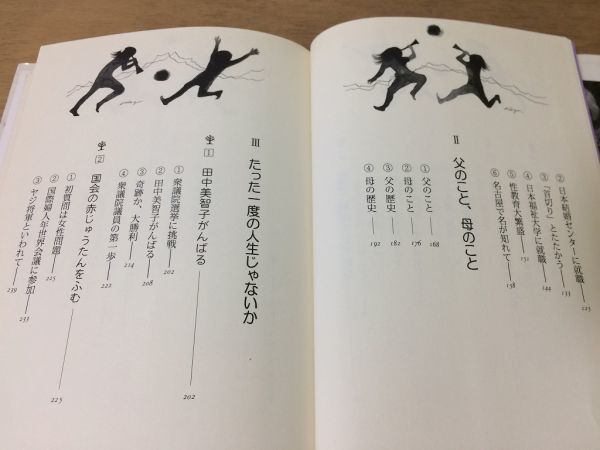 ② 日本結婚センターに就職——125
③ 「首切り」とたたかう——133
④ 日本福祉大学に就職——144
⑤ 性教育大繁盛——151
⑥ 名古屋で名が知れて——158
Ⅱ 父のこと、母のこと
① 父のこと——168
② 母のこと——176
③ 父の歴史——182
④ 母の歴史——192
Ⅲ たった一度の人生じゃないか
1 田中美智子がんばる——202
① 衆議院選挙に挑戦——202
② 田中美智子がんばる——208
③ 奇跡か、大勝利——214
④ 衆議院議員の第一歩——222
2 国会の赤じゅうたんをふむ——225
① 初質問は女性問題——225
② 国際婦人年世界会議に参加——233
③ ヤジ将軍といわれて——239